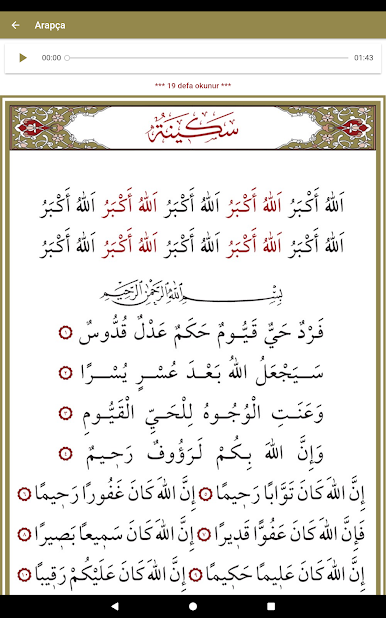 Arapça
00:00 01:43
*** 19 defa okunur ***
سَكِينَةٌ
اَللهُ أَكْبَرُ اَللهُ أَكْبَرُ اَللهُ أَكْبَرُ اَللهُ أَكْبَرُ اَللهُ أَكْبَرُ
اَللهُ أَكْبَرُ اَللهُ أَكْبَرُ اَللهُ أَكْبَرُ اَللهُ أَكْبَرُ اَللهُ أَكْبَرُ
بِسْمِ اللهِ الرَّحْمٰنِ الرَّحِيمِ
فَرْدٌ حَيٌّ قَيُّومٌ حَكَمٌ عَدْلٌ قُدُّوسٌ ١
سَيَجْعَلُ اللهُ بَعْدَ عُسْرٍ يُسْرًا ٢
وَعَنَتِ الْوُجُوهُ لِلْحَيِّ الْقَيُّومِ ٣
وَإِنَّ اللهَ بِكُمْ لَرَؤُوفٌ رَحِيمٌ ٤
إِنَّ اللهَ كَانَ تَوَّابًا رَحِيمًا ٥ إِنَّ اللهَ كَانَ غَفُورًا رَحِيمًا ٦
فَإِنَّ اللهَ كَانَ عَفُوًّا قَدِيرًا ٧ إِنَّ اللهَ كَانَ سَمِيعًا بَصِيرًا ٨
إِنَّ اللهَ كَانَ عَلِيمًا حَكِيمًا ٩ إِنَّ اللهَ كَانَ عَلَيْكُمْ رَقِيبًا ١٠